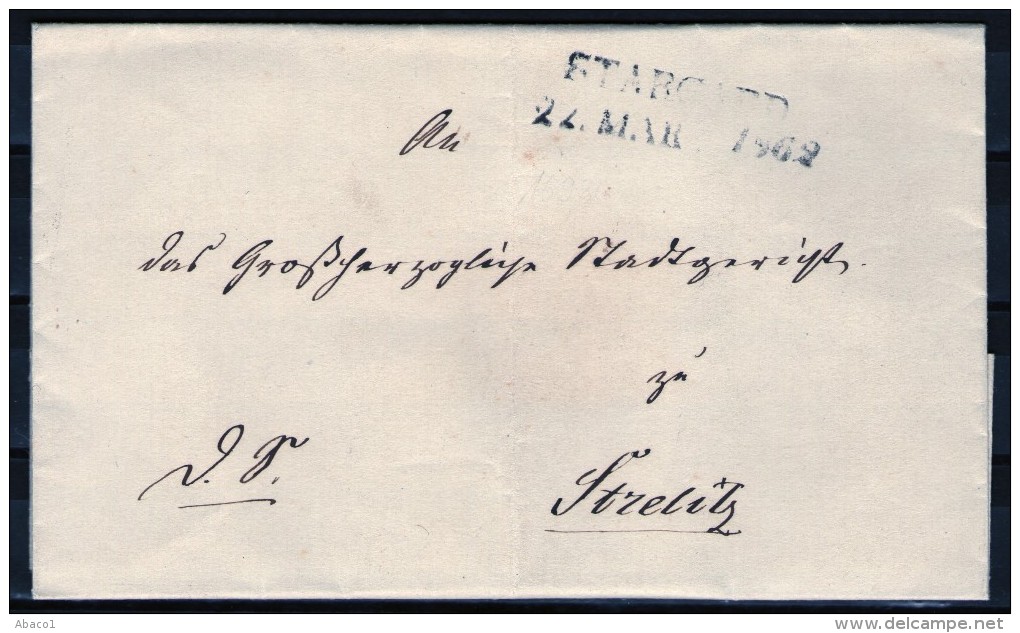 STARGARD
22. MAR 1862
An
das Großherzogliche Stadtgericht.
zu
D. S.
Strelitz
Abaco1
delcampe.net